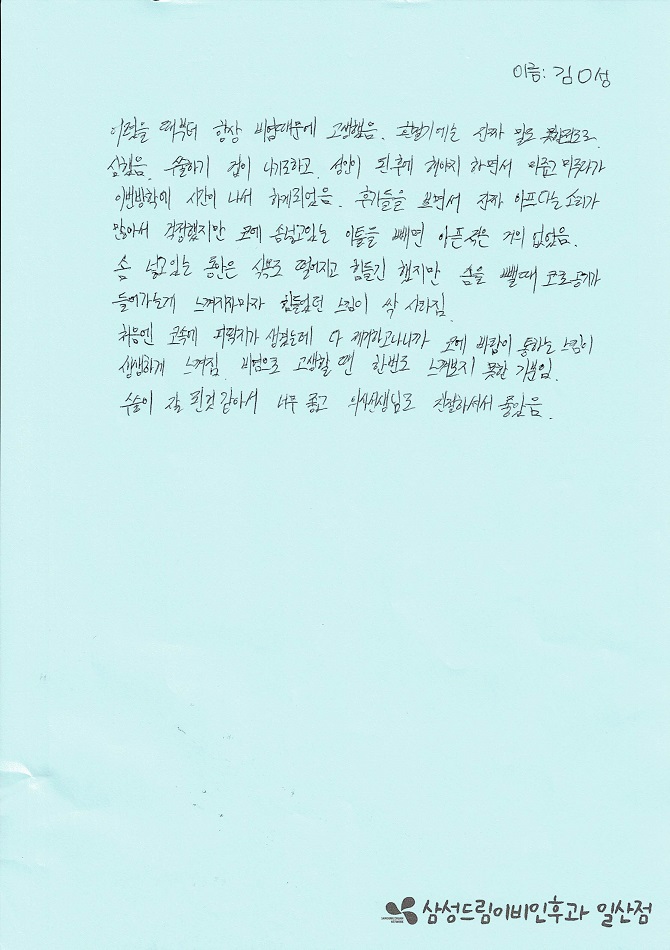 이름: 김O성
어렸을 때부터 항상 비염때문에 고생했음. 환절기에는 진짜 말도 못할정도로
심했음. 수술하기 겁이 나기도하고, 성인이 된후에 해야지 하면서 미루고 미루다가
이번방학에 시간이 나서 하게되었음. 후기들을 보면서 진짜 아프다는 소리가
많아서 걱정했지만 코에 솜넣고있는 이틀을 빼면 아픈적은 거의 없었음.
솜 넣고있는 동안은 식욕도 떨어지고 힘들긴 했지만 솜을 뺄때 코로 공기가
들어가는게 느껴지자마자 힘들었던 느낌이 싹 사라짐.
처음엔 코속에 피딱지가 생겼는데 다 제거하고나니까 코에 바람이 통하는 느낌이
생생하게 느껴짐. 비염으로 고생할 땐 한번도 느껴보지 못한 기분임.
수술이 잘 된것 같아서 너무 좋고 의사선생님도 친절하셔서 좋았음.
삼성드림이비인후과 일산점